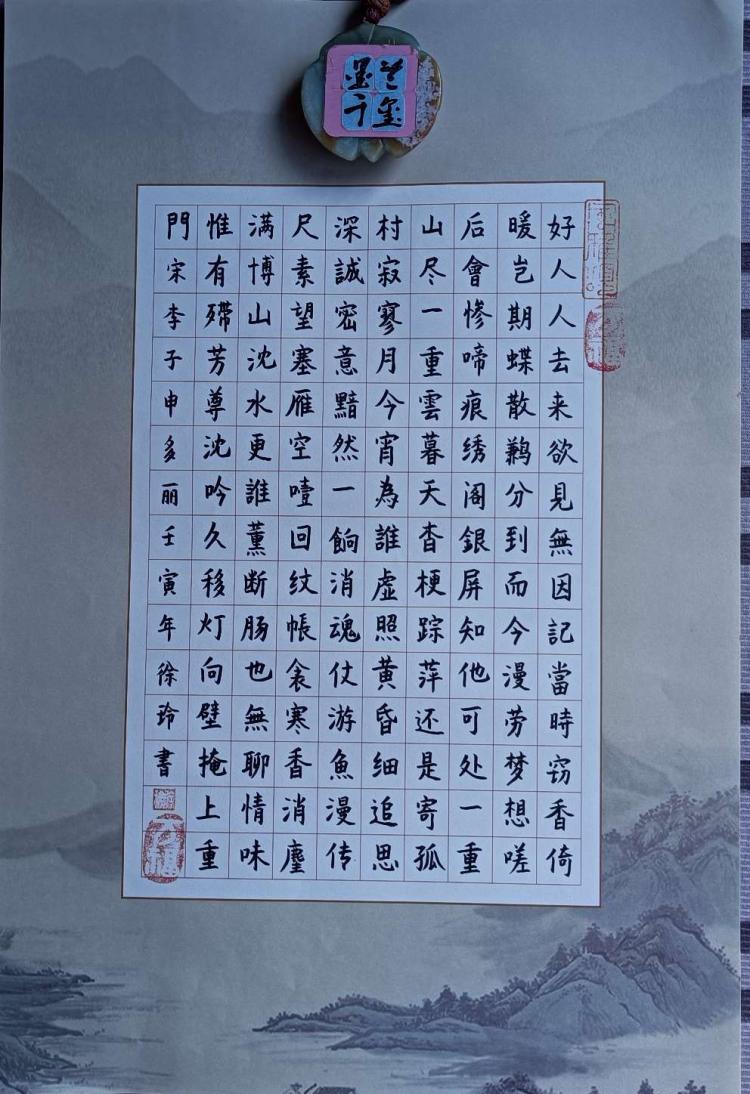 好人人去来欲見無因記當時窃香倚
暖岂期蝶散鶼分到而今漫劳梦想嗟
后會惨啼痕绣阁銀屏知他可处一重
山尽一重雲暮天杳梗踪萍还是寄孤
村寂寥月今宵為誰虚照黄昏细追思
深誠密意黯然一餉消魂仗游魚漫传
尺素望塞雁空噎回纹帳衾寒香消麈
满博山沈水更誰薰断肠也無聊情味
惟有殢芳尊沈吟久移灯向壁掩上重
門宋李子申多丽壬寅年徐玲書